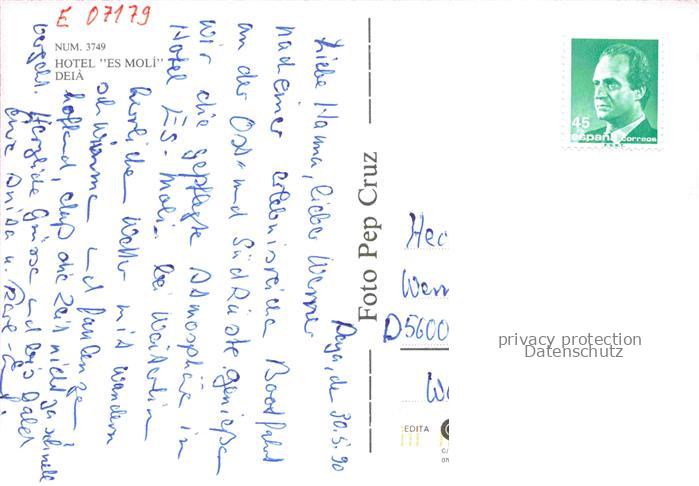 E 07179
NUM. 3749
HOTEL "ES MOLÍ"
DEIÀ
Deya, de 30.5.90
Liebe Hanna, lieber Werner
nach einer erlebnisreichen Bootsfahrt
an der Ost- und Südküste genießen
wir die gepflegte Atmosphäre in
Hotel Es-Moli. bei weiterhin
herrlichem Wetter mit wandern
schwimmen und faulenzen
hoffend, daß die Zeit nicht zu schnell
vergeht. Herzliche Grüsse und bis bald
Eure Anita u.
Foto Pep Cruz
45
españa correos
Wern
D5600
EDITA
privacy protection
Datenschutz